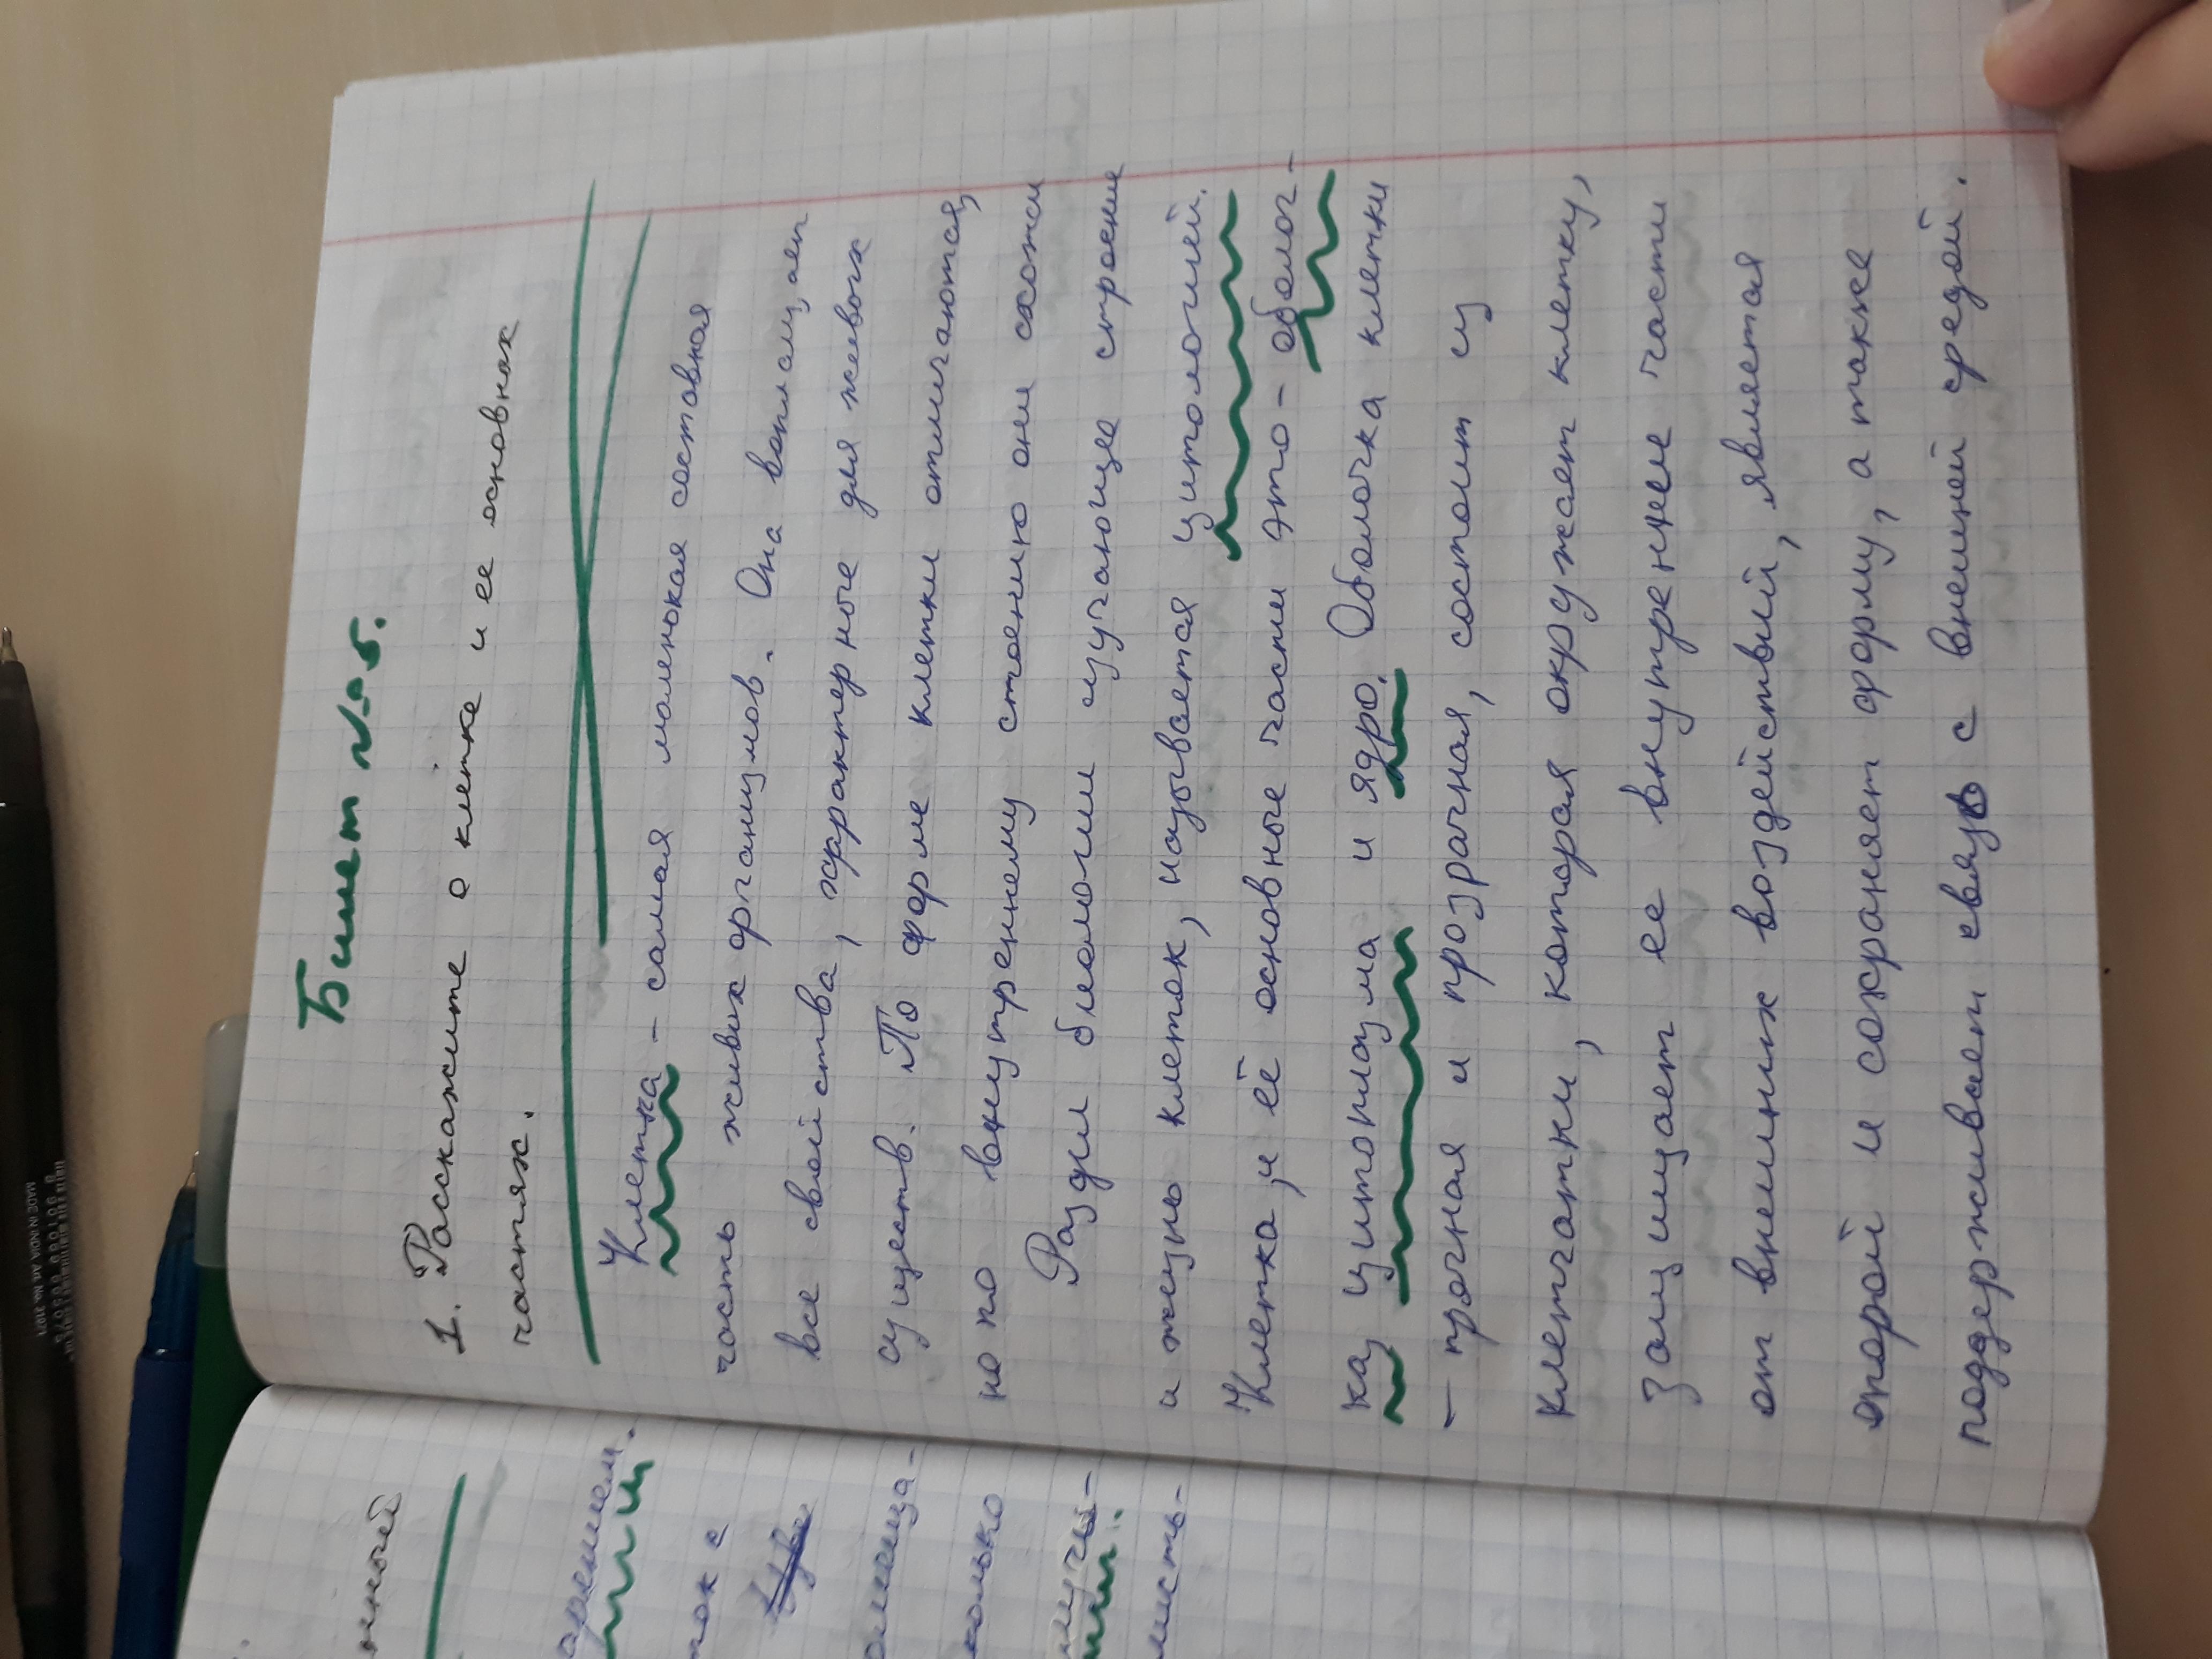 Билет №5.
1. Расскажите о клетке и ее основных
частях.
Клетка - самая маленькая составная
часть живых организмов. Она воплощает
все свойства, характерные для живых
существ. По форме клетки отличаются,
но по внутреннему стоению они схожи
Раздел биологии изучающие строение
и жизнь клеток, называется цитологией.
Клетка, и её основные части это - оболоч-
ка, цитоплазма и ядро. Оболочка клетки
- прочная и прозрачная, состоит из
клетчатки, которая окружает клетку,
Защищает ее внутренние части
от внешних воздействий, является
опорой и сохраняет форму, а также
поддерживает связь с внешней средой.
нный
ток с
колько
мисть-
MADE IN INDIA